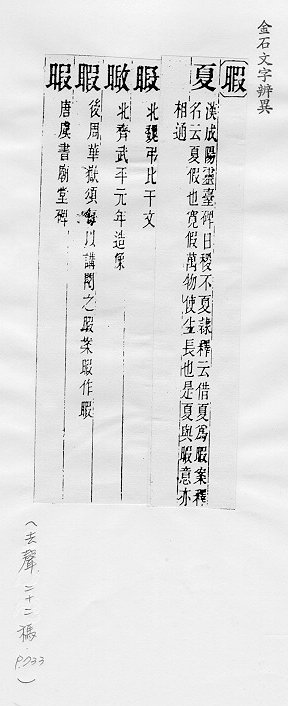 金石文字辨異
暇
夏 漢成陽靈臺碑日稷不夏隸釋云借夏爲暇案釋
名云夏假也寬假萬物使生長也是夏與暇意亦
相通
北魏弔比干文
北齊武平元年造象
暇 後周華嶽頌每以講閱之暇案暇作暇
暇 唐虞書廟堂碑
(去聲 二十二禡 P.733)